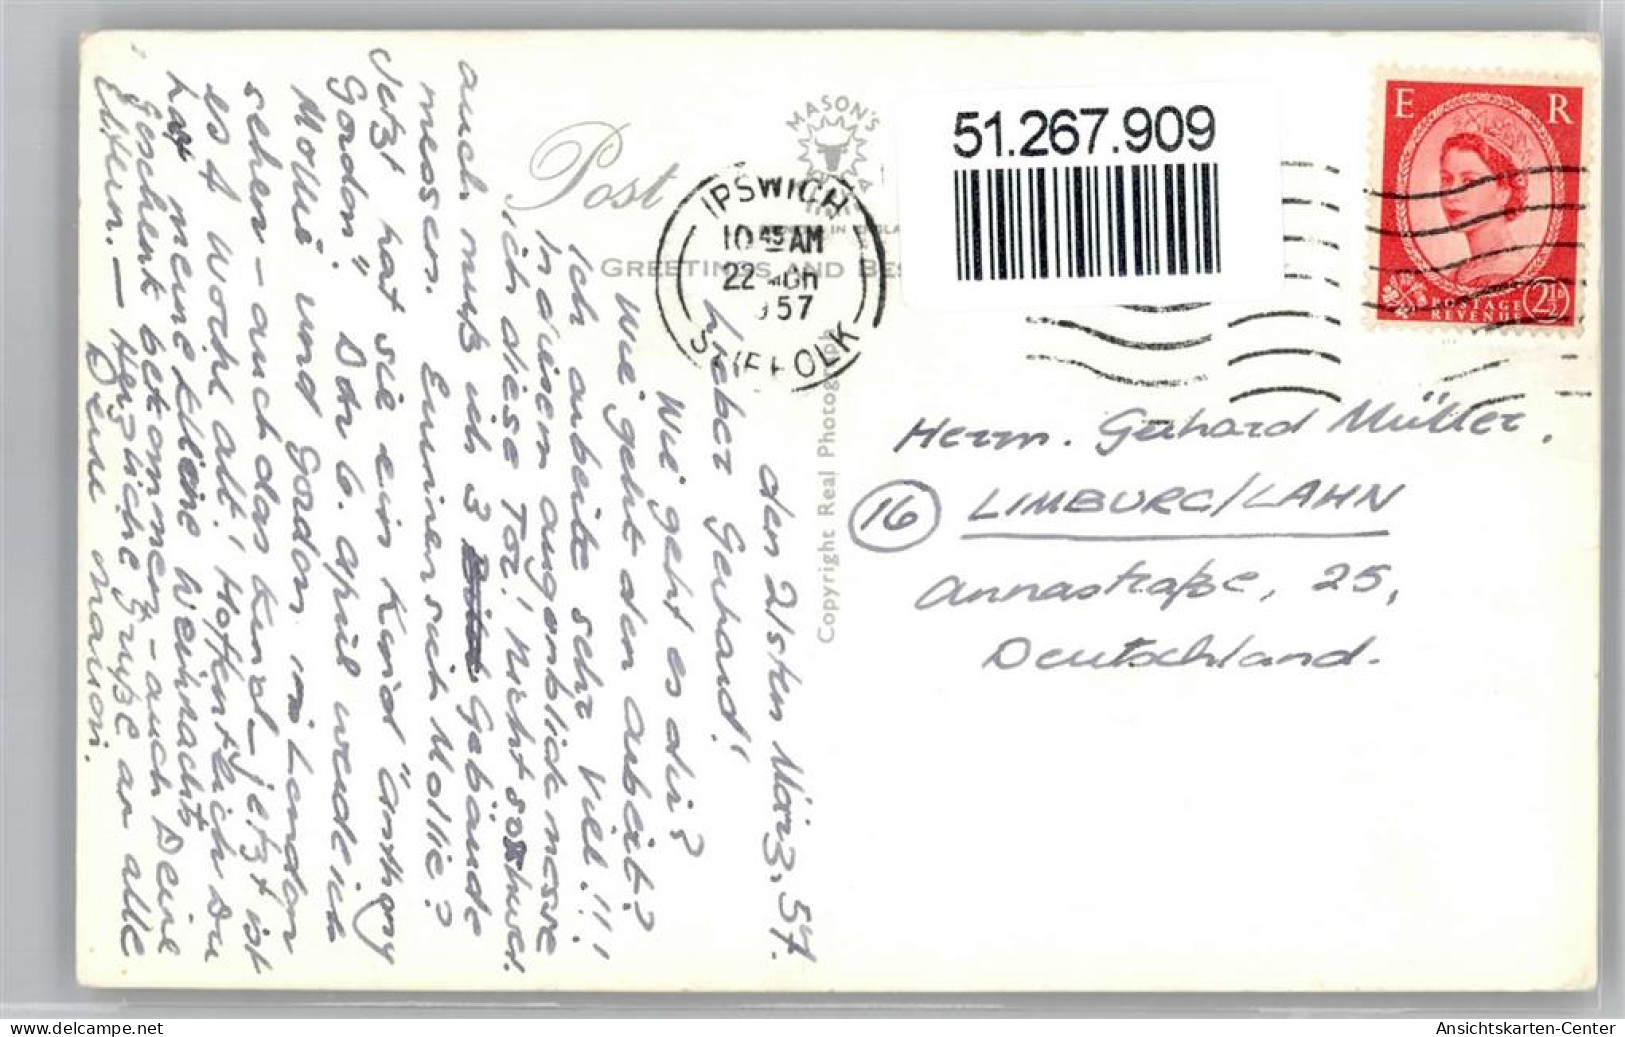 51.267.909
Post
MASON'S
ALPHA
GREETINGS AND BES
Copyright Real Photograph
IPSWICH
10 45 AM
22 MCH
1957
SUFFOLK
E R
POSTAGE
REVENUE
2½D
Herrn. Gerhard Müller.
16 LIMBURG/LAHN
Annastraße, 25,
Deutschland.
den 21sten März, 57.
Lieber Gerhard!
Wie geht es dir?
Wie geht den arbeit?
Ich arbeite sehr viel!!!
In diesem augenblick messe
ich diese Tor! Nicht so schwer.
auch muß ich 3 Gebäude
messen. Erinnersich Mollie?
Jetzt hat sie ein Kind "Anthony
Gordon". Dar 6. april werde ich
Mollie und Gordon in London
sehen - auch das Kind - jetzt ist
es 4 Woche alt! Hoffentlich Du
hat meine kleine Weinachts
Geschenk bekommen - auch Deine
Eltern. - Herzliche Grüße an alle
Deine Marion.
ANSICHTSKARTEN-CENTER
delcampe.net